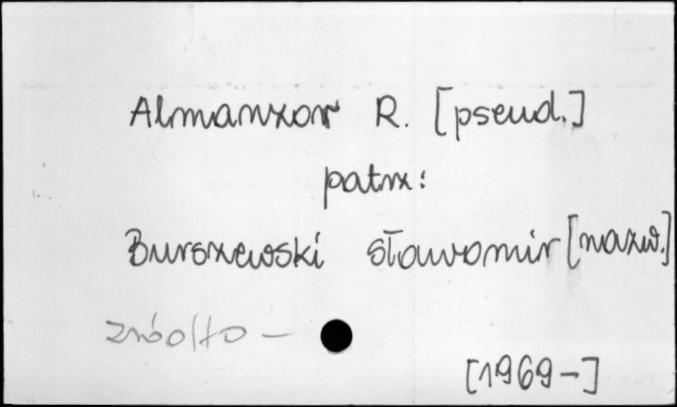 Almanzor R. [pseud.]
patrz:
Burszewski Sławomir [nazw.]
źródło –
[1969-]